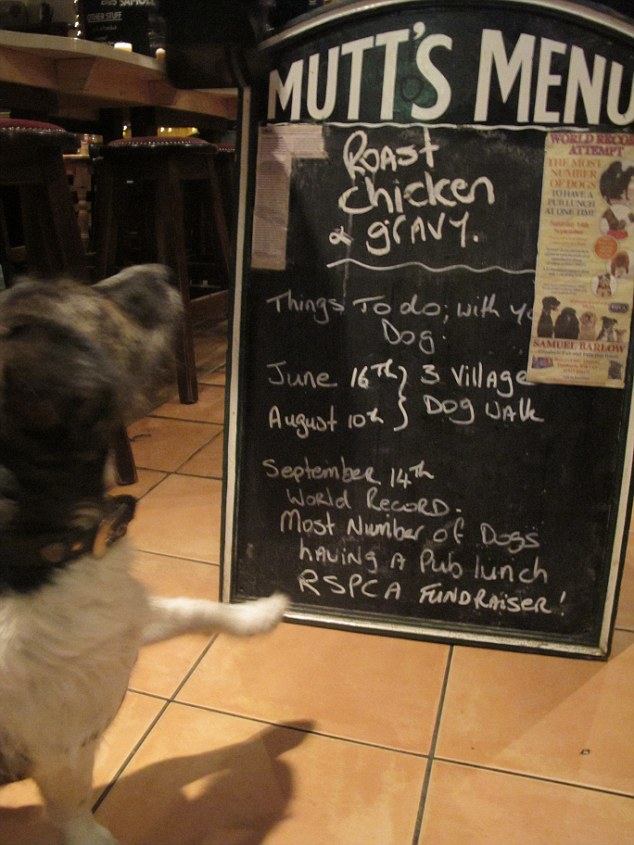 OTHER STUFF
MUTT'S MENU
Roast
chicken
& gravy.
Things To do; with Yo
Dog.
June 16th } 3 Village
August 10th } Dog Walk
September 14th
World Record.
Most Number of Dogs
having A Pub lunch
RSPCA Fundraiser!
WORLD RECOR
ATTEMPT
THE MOST
NUMBER
OF DOGS
TO HAVE A
PUB LUNCH
AT ONE TIME!
SAMUEL BARLOW